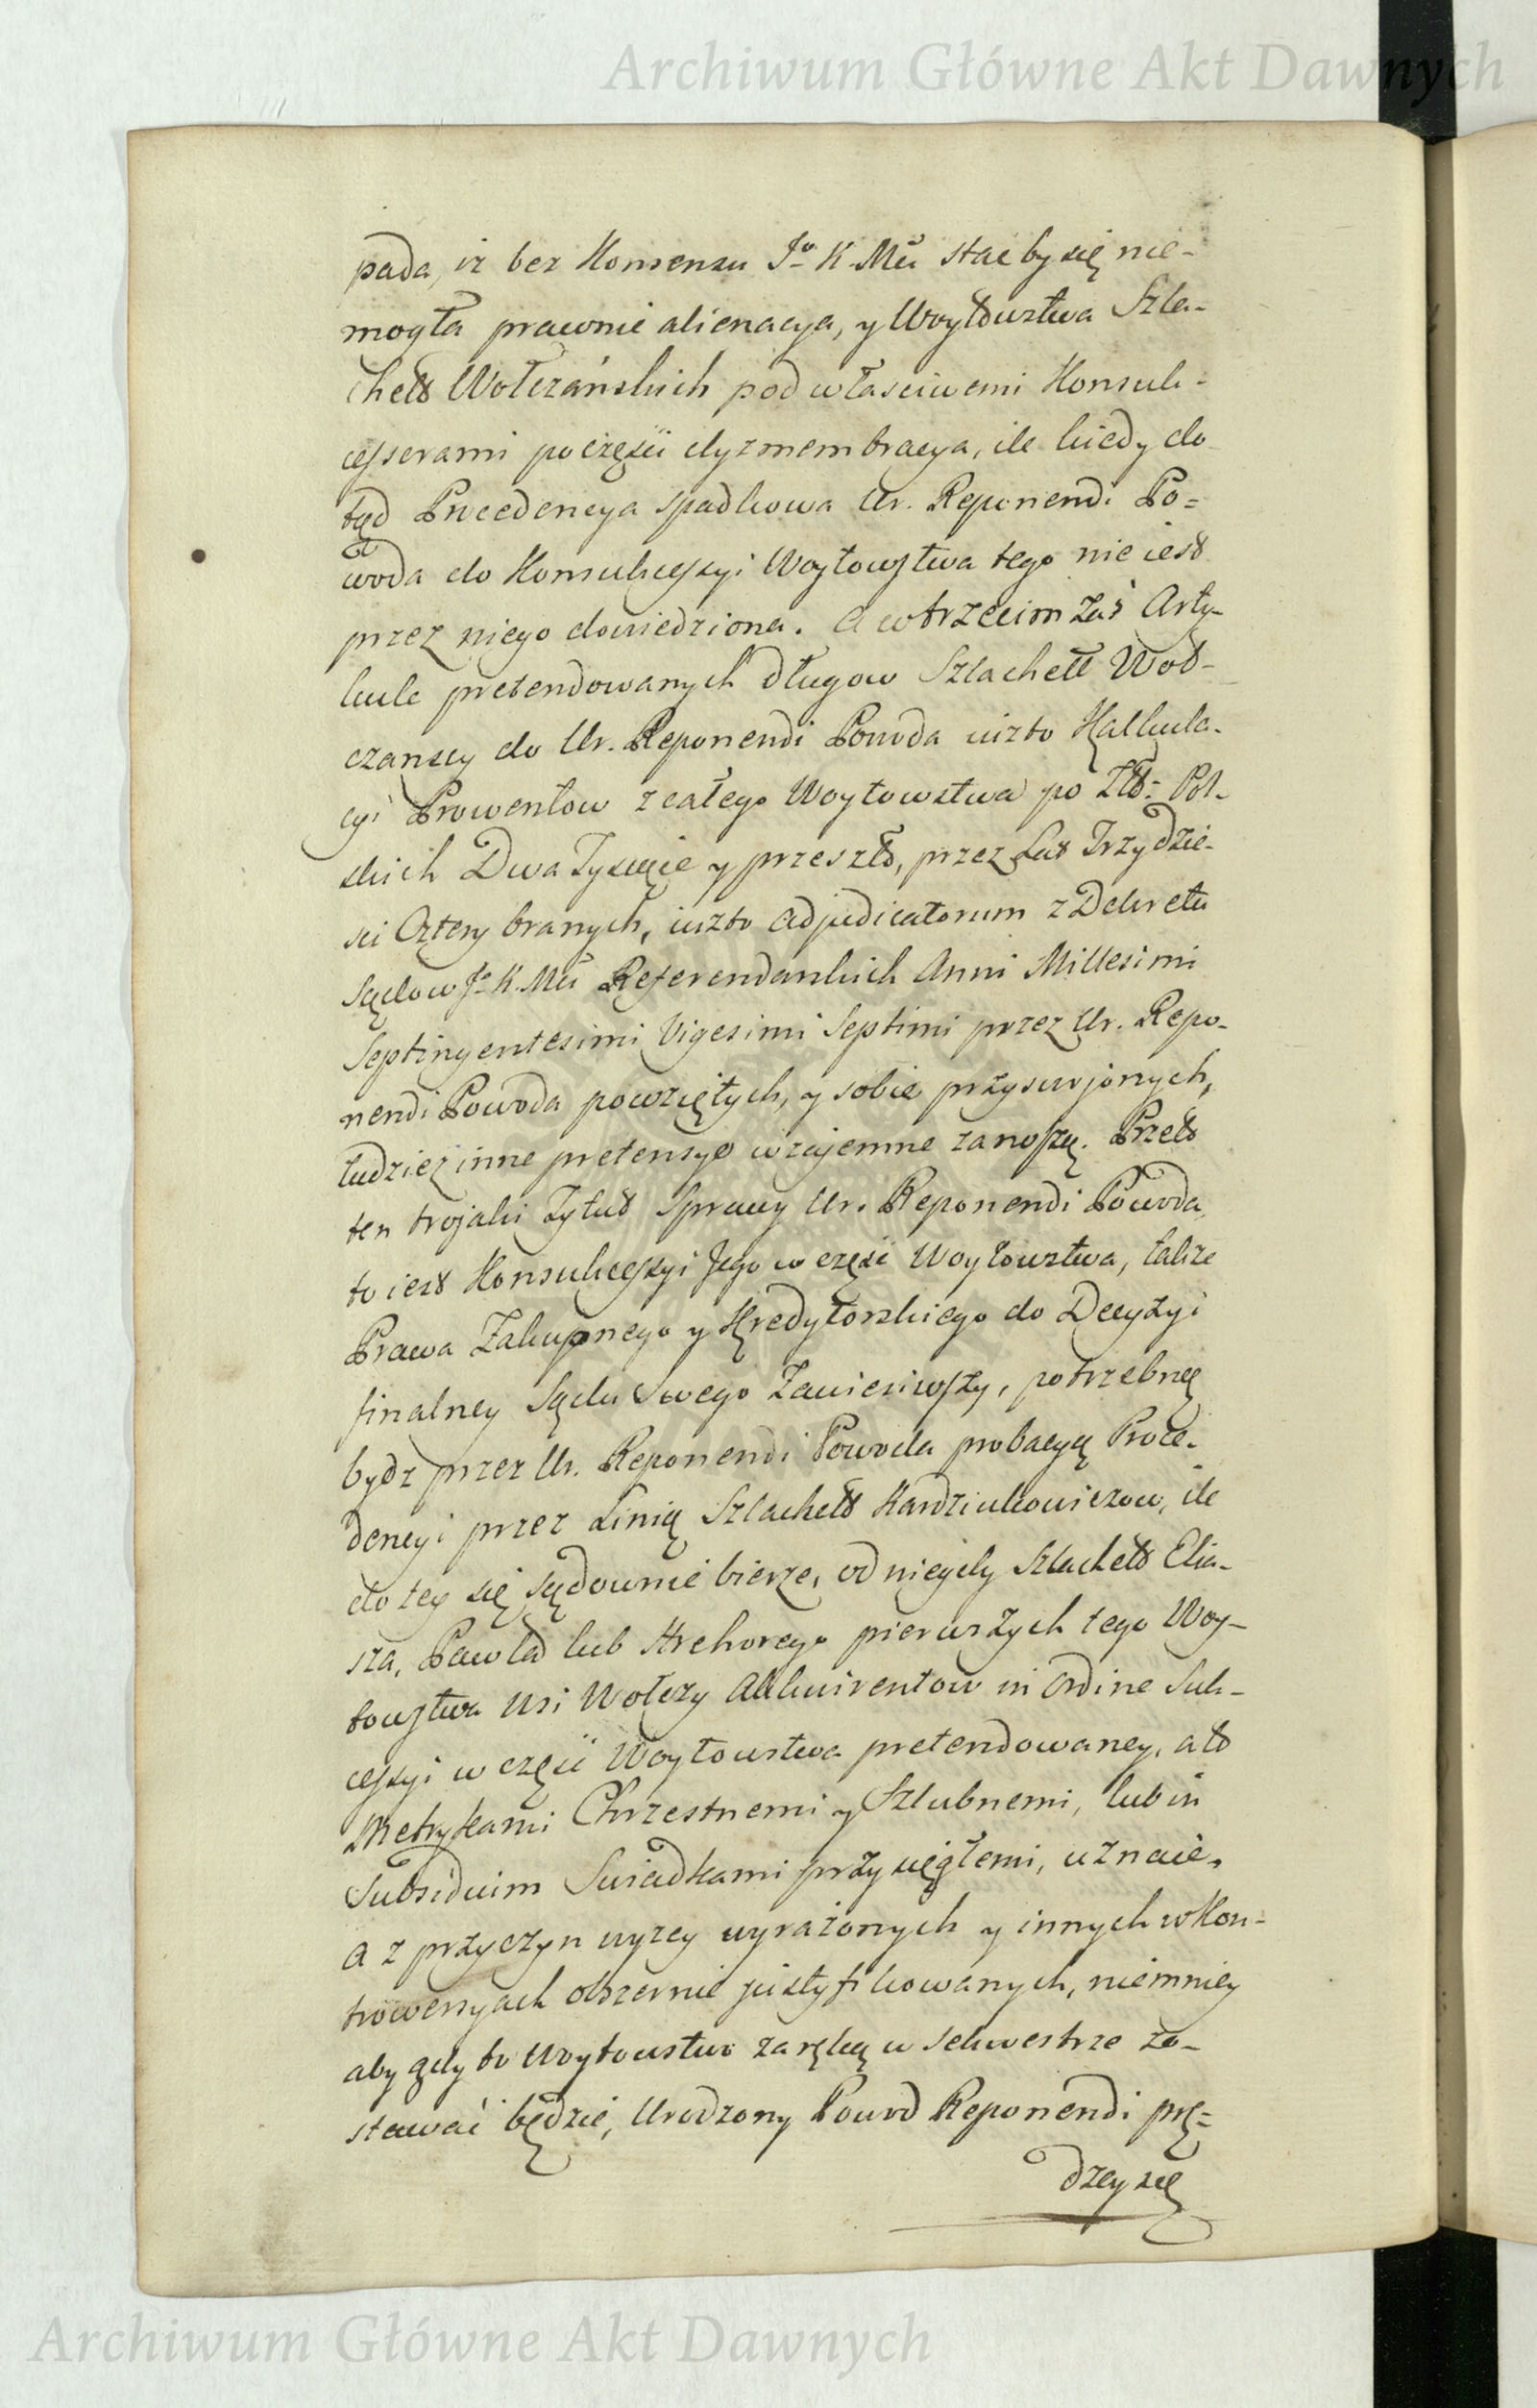 Archiwum Główne Akt Dawnych
pada, iż bez Konsensu Jº K. Mci stać by się nie-
mogła prawnie alienacya, y Woytowstwa Szla-
chett Wołczańskich pod właściwemi Konsuk-
cessorami po części dyzmembracya, ile kiedy do
tąd Procedencya spadkowa Ur. Reponendi Po=
woda do Konsukcessyi Woytowstwa tego nie iest
przez niego dowiedziona. A w trzecim zaś Arty-
kule pretendowanych długow Szlachett Woł-
czanscy do Ur. Reponendi Powoda iużto Kalkula-
cyi Prowentow z całego Woytowstwa po Złt: Pol-
skich Dwa Tysiące y przeszło, przez Lat Trzydzie-
sci Cztery branych, iużto adjudicatorum z Dekretu
Sądow Jº K. Mci Referendarskich Anni Millesimi
Septingentesimi Vigesimi Septimi przez Ur. Repo-
nendi Powoda powziętych, y sobie przyswojonych,
tudziez inne pretensye wzajemne zanoszą. Przeto
ten trojaki Tytuł Sprawy Ur. Reponendi Powoda,
to iest Konsukcessyi Jego w części Woytowstwa, także
Prawa Zakupnego y Kredytorskiego do Decyzyi
finalney Sądu Swego Zawiesiwszy, potrzebną
bydz przez Ur. Reponendi Powoda probacyą Proce-
dencyi przez Linią Szlachett Kardziukowiczow, ile
do tey się sądownie bierze, od niegdy Szlachett Elia-
sza, Pawła lub Hrehorego pierwszych tego Woy-
towstwa Wsi Wołczy Akkwirentow in ordine Suk-
cessyi w części Woytowstwa pretendowaney, a to
Metrykami Chrzestnemi y Szlubnemi, lub in
Subsidium Swiadkami przysięgłemi, uznaie,
a z przyczyn wyzey wyrażonych y innych w Kon-
trowersyach obszernie justyfikowanych, niemniey
aby gdy to Woytowstwo za ręką w sekwestrze zo-
stawać będzie, Urodzony Powod Reponendi prę=
dzey się
Archiwum Główne Akt Dawnych